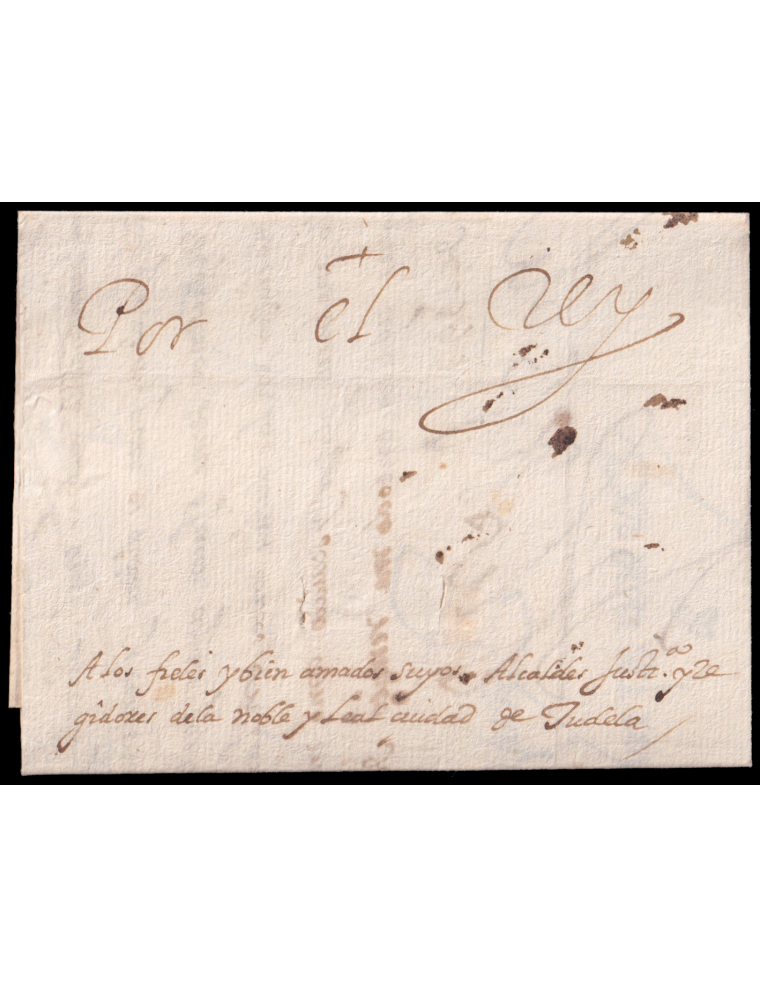 Por el Rey
A los fieles y bien amados suyos, Alcaldes Justi.as y Re
gidores dela noble y Leal ciudad de Tudela